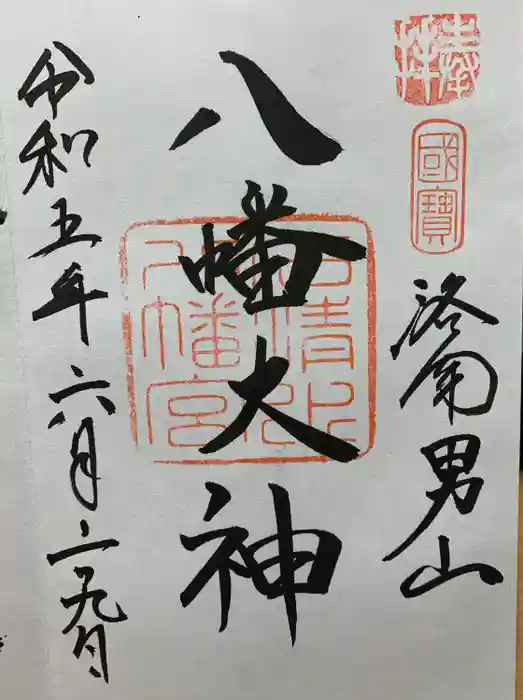 奉拝
國寶
洛南男山
八幡大神
石清水八幡宮
令和五年六月二九日